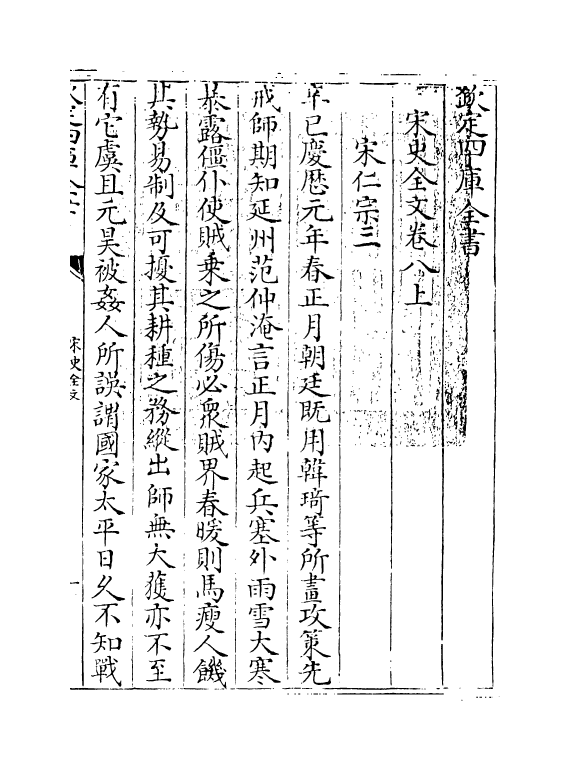 欽定四庫全書
宋史全文卷八上
宋仁宗三
辛巳慶厯元年春正月朝廷既用韓琦等所畫攻策先
戒師期知延州范仲淹言正月内起兵塞外雨雪大寒
暴露僵仆使賊乗之所傷必衆賊界春暖則馬瘦人饑
其勢易制及可擾其耕種之務縱出師無大獲亦不至
有它虞且元昊被姦人所誤謂國家太平日久不知戰
宋史全文
一